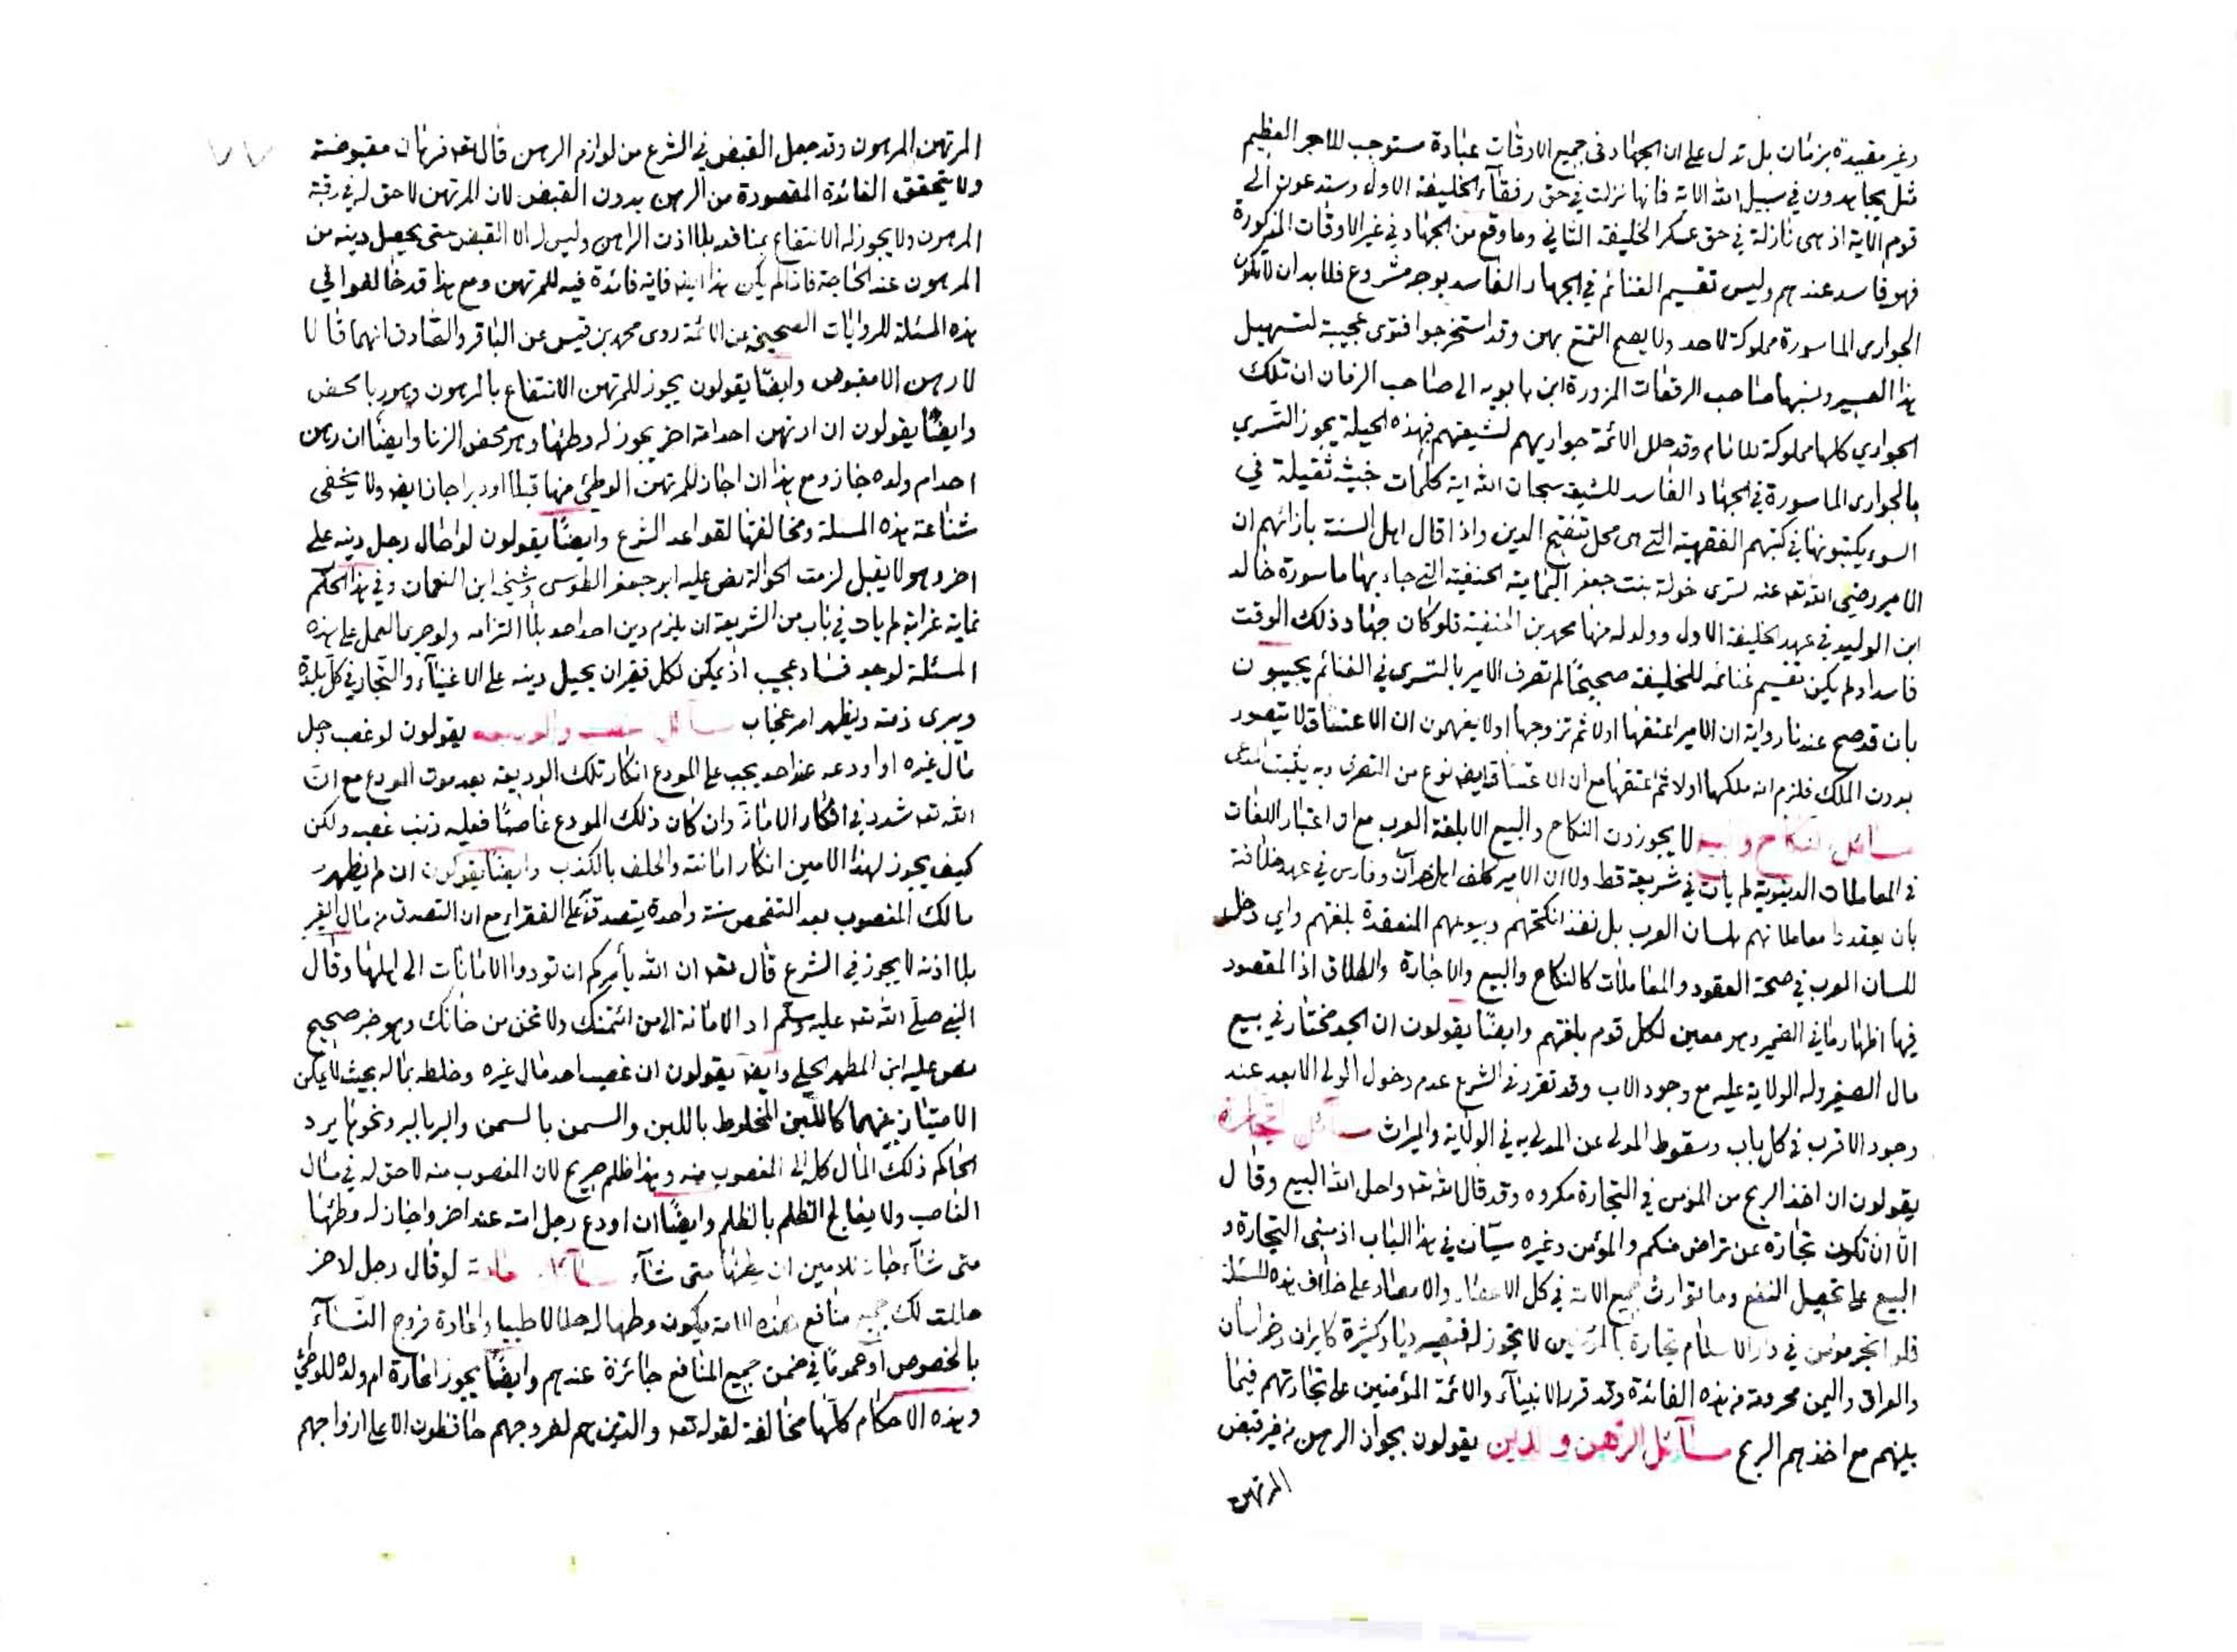 وغير مقيدة بزمان بل تدل على ان الجهاد فى جميع الاوقات عبادة مستوجب للاجر العظيم
مثل يجاهدون في سبيل الله الاية فانها نزلت في حق رفقآء الخليفة الاول وستدعون الى
قوم الاية اذ هى نازلة في حق عسكر الخليفة الثاني وما وقع من الجهاد في غير الاوقات المذكورة
فهو فاسد عندهم وليس تقسيم الغنائم في الجهاد الفاسد بوجه مشروع فلابد ان لا تكون
الجوارى الماسورة مملوكة لاحد ولا يصح التمتع بهن وقد استخرجوا فتوى عجيبة لتسهيل
هذا العسير ونسبها صاحب الرقعات المزورة ابن بابويه الى صاحب الزمان ان تلك
الجواري كلها مملوكة للامام وقد حلل الائمة جواريهم لشيعتهم فبهذه الحيلة يجوز التسري
بالجوارى الماسورة في الجهاد الفاسد للشيعة سبحان الله اية كلمات خبيثة ثقيلة في
السوء يكتبونها في كتبهم الفقهية التى هى محل تنقيح الدين واذا قال اهل السنة بازائهم ان
الامير رضي الله تعه عنه تسرى خولة بنت جعفر اليمامية الحنفية التي جاء بها ماسورة خالد
ابن الوليد في عهد الخليفة الاول وولد له منها محمد بن الحنفية فلو كان جهاد ذلك الوقت
فاسدا ولم يكن تقسيم غنائمه للخليفة صحيحًا لم تصرف الامير بالتسرى في الغنائم يجيبون
بان قد صح عندنا رواية ان الامير اعتقها اولا ثم تزوجها اولا يفهمون ان الاعتاق لا يتصور
بدون الملك فلزم انه ملكها اولا ثم اعتقها مع ان الاعتاق ايضه نوع من التصرف وبه يثبت المدعى
مسائل النكاح والبيع لا يجوزون النكاح والبيع الا بلغة العرب مع ان اعتبار اللغات
فى المعاملات الدنيوية لم يأت في شريعة قط ولا ان الامير كلف اهل خراسان وفارس في عهد خلافته
بان يعقدوا معاملاتهم بلسان العرب بل نفذ انكحتهم وبيوعهم المنعقدة بلغتهم واي دخل
للسان العرب في صحة العقود والمعاملات كالنكاح والبيع والاجارة والطلاق اذ المقصود
فيها اظهار ما في الضمير وهو معين لكل قوم بلغتهم وايضًا يقولون ان الجد مختار في بيع
مال الصغير وله الولاية عليه مع وجود الاب وقد تقرر في الشرع عدم دخول الولى الابعد عند
وجود الاقرب في كل باب وسقوط المدلى عن المدلى به في الولاية والميراث مسائل التجارة
يقولون ان اخذ الربح من المؤمن في التجارة مكروه وقد قال الله تعه واحل الله البيع وقال
الّا ان تكون تجارة عن تراض منكم والمؤمن وغيره سيّان في هذا الباب اذ مبنى التجارة و
البيع على تحصيل النفع وما توارث جميع الامة في كل الاعصار والامصار على خلاف هذه المسئلة
فلو اتجر مؤمن في دار الاسلام تجارة بالمؤمنين لا يجوز له فتصير ديار كثيرة كايران وخراسان
والعراق واليمن محرومة من هذه الفائدة وقد قرر الانبيآء والائمة المؤمنين على تجارتهم فيما
بينهم مع اخذهم الربح مسآئل الرّهن والدين يقولون بجواز الرهن من غير قبض
المرتهن
المرتهن المرهون وقد جعل القبض في الشرع من لوازم الرهن قال تعه فرهان مقبوضة
ولا يتحقق الفائدة المقصودة من الرهن بدون القبض لان المرتهن لا حق له في رقبة
المرهون ولا يجوز له الانتفاع بمنافعه بلا اذن الراهن وليس له الا القبض حتى يحصل دينه من
المرهون عند الحاجة فاذا لم يكن هذا ايضه فاية فائدة فيه للمرتهن ومع هذا قد خالفوا في
هذه المسئلة للروايات الصحيحة عن الائمة روى محمد بن قيس عن الباقر والصّادق انهما قالا
لا رهن الا مقبوض وايضًا يقولون يجوز للمرتهن الانتفاع بالمرهون وهو ربا محض
وايضًا يقولون ان ارتهن احد امة اخر يجوز له وطئها وهو محض الزنا وايضًا ان رهن
احد ام ولده جاز ومع هذا ان اجاز للمرتهن الوطئ منها قبلا او دبرا جاز ايضه ولا يخفى
شناعة هذه المسئلة ومخالفتها لقواعد الشرع وايضًا يقولون لو احال رجل دينه على
اخر وهو لا يقبل لزمت الحوالة نص عليه ابو جعفر الطوسى وشيخه ابن النعمان وفي هذا الحكم
غاية غرابة لم يأت في باب من الشريعة ان يلزم دين احد احدا بلا التزامه ولو جرى العمل على هذه
المسئلة لوجد فساد عجيب اذ يمكن لكل فقير ان يحيل دينه على الاغنيآء والتّجار في كل بلدة
ويبرى ذمته ويظهر امر عجاب مسآئل الغصب والوديعة يقولون لو غصب رجل
مال غيره او اودعه عند احد يجب على المودع انكار تلك الوديعة بعد موت المودع مع ان
الله تعه شدد في انكار الامانة وان كان ذلك المودع غاصبًا فعليه ذنب غصبه ولكن
كيف يجوز لهذا الامين انكار امانته والحلف بالكذب وايضًا يقولون ان لم يظهر
مالك المغصوب بعد التفحص سنة واحدة يتصدق على الفقراء مع ان التصدق من مال الغير
بلا اذنه لا يجوز في الشرع قال تعه ان الله يأمركم ان تودوا الامانات الى اهلها وقال
النبي صلى الله تعه عليه وسلم اد الامانة الى من ائتمنك ولا تخن من خانك وهو خبر صحيح
نص عليه ابن المطهر الحلي وايضه يقولون ان غصب احد مال غيره وخلطه بماله بحيث لا يمكن
الامتياز بينهما كاللبن المخلوط باللبن والسمن بالسمن والبر بالبر ونحوها يرد
الحاكم ذلك المال كله الى المغصوب منه وهذا ظلم صريح لان المغصوب منه لا حق له في مال
الغاصب ولا يعالج الظلم بالظلم وايضًا ان اودع رجل امته عند اخر واجاز له وطئها
متى شآء جاز للامين ان يطئها متى شآء لو قال رجل لاخر
حللت لك جميع منافع هذه الامة يكون وطئها له حلالا طيبا واعارة فروج النّسآء
بالخصوص او عمومًا في ضمن جميع المنافع جائزة عندهم وايضًا يجوز اعارة ام ولده للوطئ
وهذه الاحكام كلّها مخالفة لقوله تعه والذين هم لفروجهم حافظون الا على ازواجهم